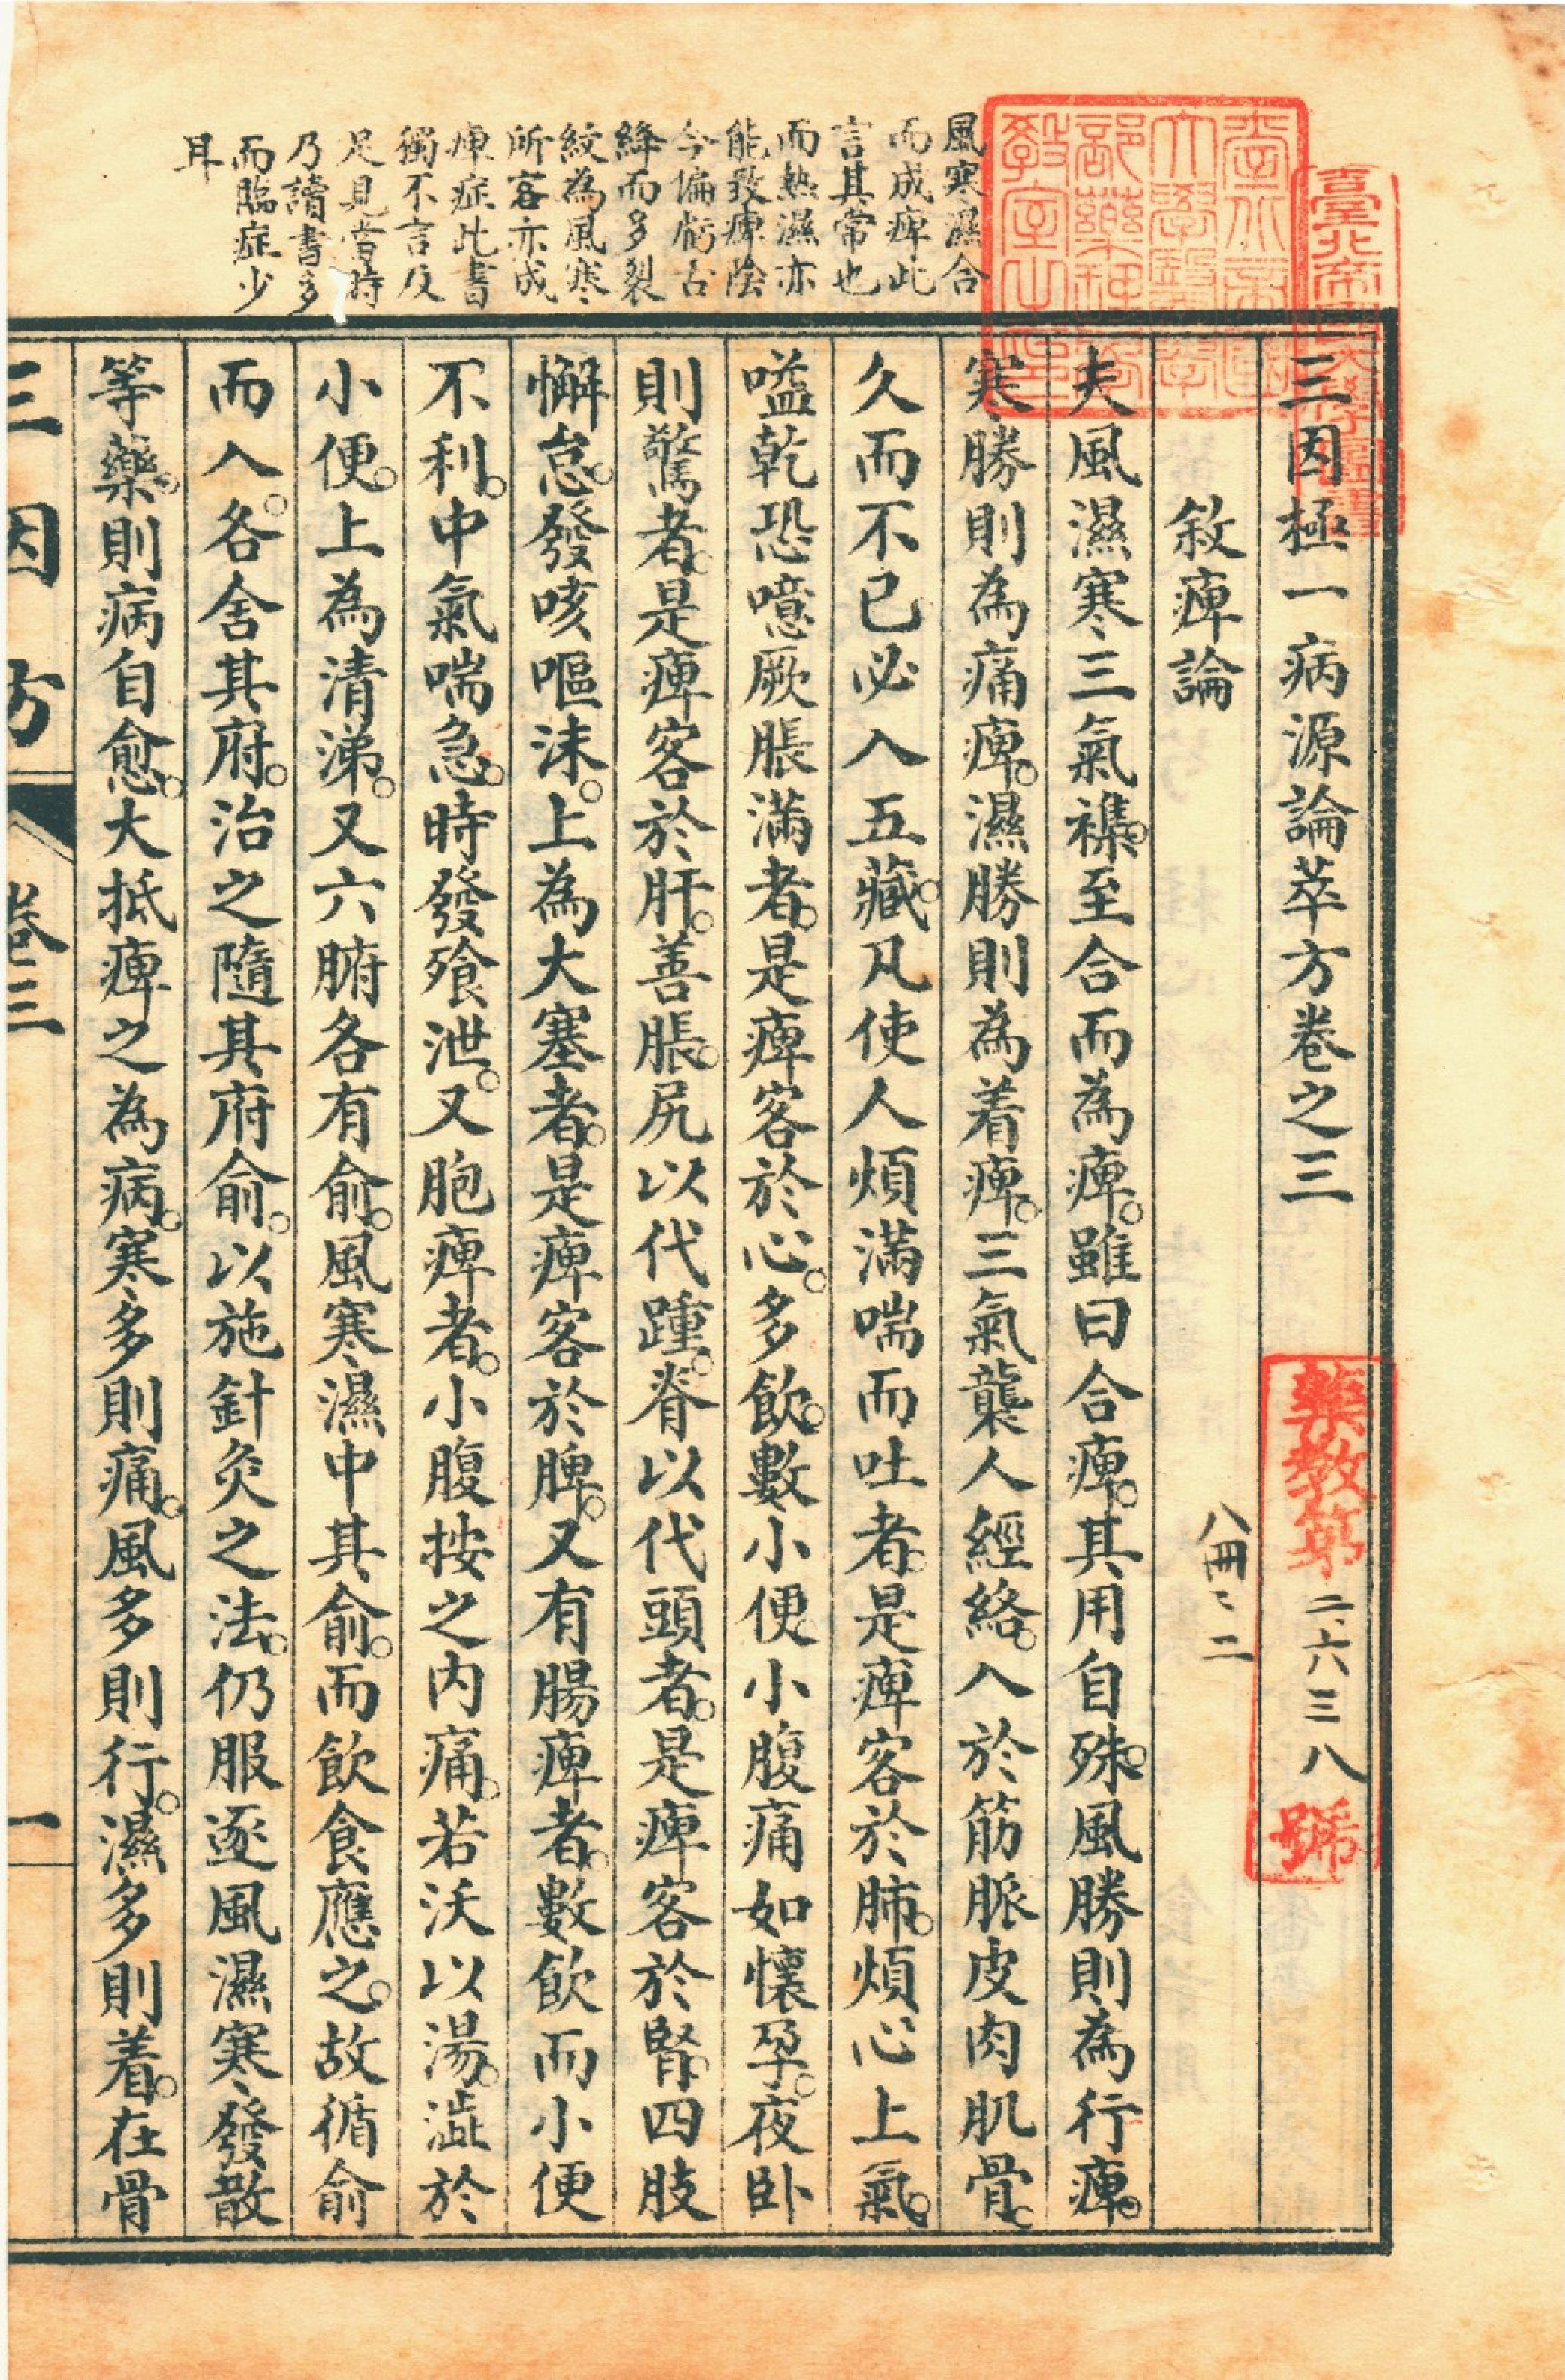 風寒濕合
而成痺此
言其常也
而熱濕亦
能致痺陰
今偏虧舌
絳而多裂
紋為風寒
所客亦成
痺症此書
獨不言及
足見當時
乃讀書多
而臨症少
耳
三因極一病源論萃方卷之三
敘痺論
夫風濕寒三氣襍至合而為痺。雖曰合痺。其用自殊。風勝則為行痺。
寒勝則為痛痺。濕勝則為着痺。三氣襲人經絡。入於筋脈皮肉肌骨。
久而不已必入五藏。凡使人煩滿喘而吐者。是痺客於肺。煩心上氣。
嗌乾恐噫厥脹滿者。是痺客於心。多飲。數小便。小腹痛如懷孕。夜卧
則驚者。是痺客於肝。善脹。尻以代踵。脊以代頭者。是痺客於腎。四肢
懈怠。發咳嘔沫。上為大塞者。是痺客於脾。又有腸痺者。數飲而小便
不利。中氣喘急。時發飱泄。又胞痺者。小腹按之內痛。若沃以湯。澁於
小便。上為清涕。又六腑各有俞。風寒濕中其俞。而飲食應之。故循俞
而入。各舍其府。治之隨其府俞。以施針灸之法。仍服逐風濕寒發散
等藥。則病自愈。大抵痺之為病。寒多則痛。風多則行。濕多則着。在骨
三因方
卷三
一
藥教第二六三八號
八冊ミ二